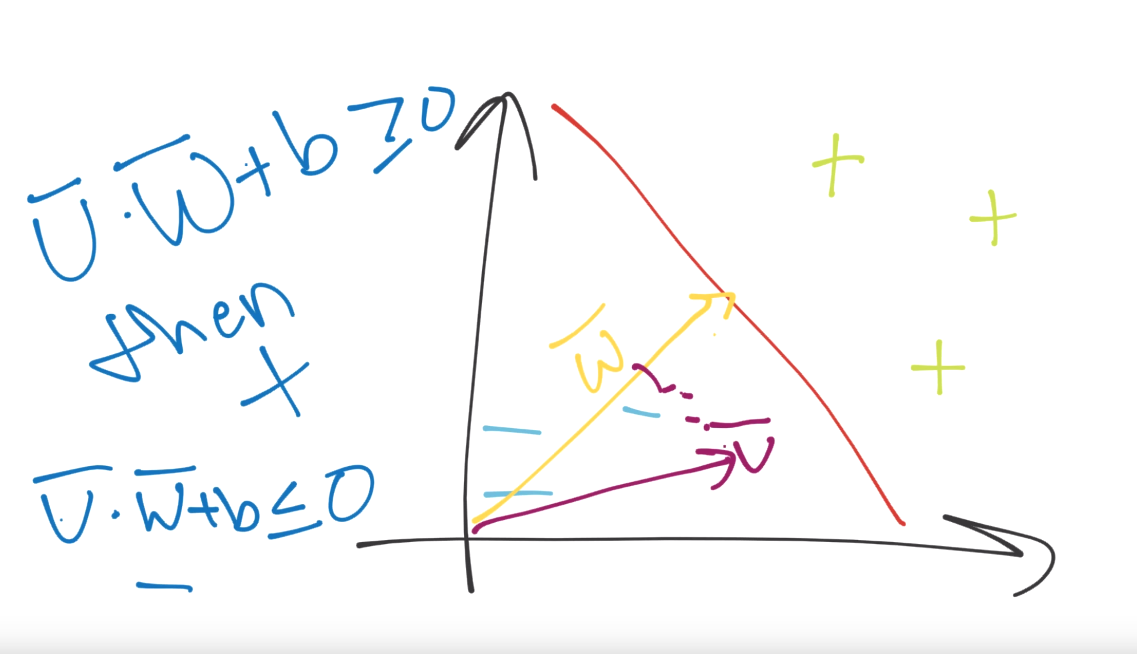 U̅ · W̅ + b ≥ 0
then
+
U̅ · W̅ + b ≤ 0
−
W̅
U̅
+
+
+
−
−
−